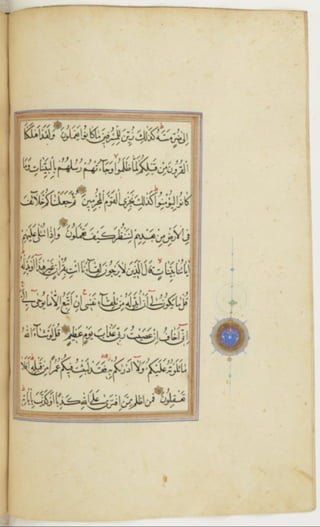 إِلَى ضُرٍّ مَسَّهُ كَذَلِكَ زُيِّنَ لِلْمُسْرِفِينَ مَا كَانُوا يَعْمَلُونَ وَلَقَدْ أَهْلَكْنَا
الْقُرُونَ مِنْ قَبْلِكُمْ لَمَّا ظَلَمُوا وَجَاءَتْهُمْ رُسُلُهُمْ بِالْبَيِّنَاتِ وَمَا
كَانُوا لِيُؤْمِنُوا كَذَلِكَ نَجْزِي الْقَوْمَ الْمُجْرِمِينَ ثُمَّ جَعَلْنَاكُمْ خَلَائِفَ
فِي الْأَرْضِ مِنْ بَعْدِهِمْ لِنَنْظُرَ كَيْفَ تَعْمَلُونَ وَإِذَا تُتْلَى عَلَيْهِمْ
آيَاتُنَا بَيِّنَاتٍ قَالَ الَّذِينَ لَا يَرْجُونَ لِقَاءَنَا ائْتِ بِقُرْآنٍ غَيْرِ هَذَا أَوْ بَدِّلْهُ
قُلْ مَا يَكُونُ لِي أَنْ أُبَدِّلَهُ مِنْ تِلْقَاءِ نَفْسِي إِنْ أَتَّبِعُ إِلَّا مَا يُوحَى إِلَيَّ
إِنِّي أَخَافُ إِنْ عَصَيْتُ رَبِّي عَذَابَ يَوْمٍ عَظِيمٍ قُلْ لَوْ شَاءَ اللَّهُ
مَا تَلَوْتُهُ عَلَيْكُمْ وَلَا أَدْرَاكُمْ بِهِ فَقَدْ لَبِثْتُ فِيكُمْ عُمُرًا مِنْ قَبْلِهِ أَفَلَا
تَعْقِلُونَ فَمَنْ أَظْلَمُ مِمَّنِ افْتَرَى عَلَى اللَّهِ كَذِبًا أَوْ كَذَّبَ بِآيَاتِهِ